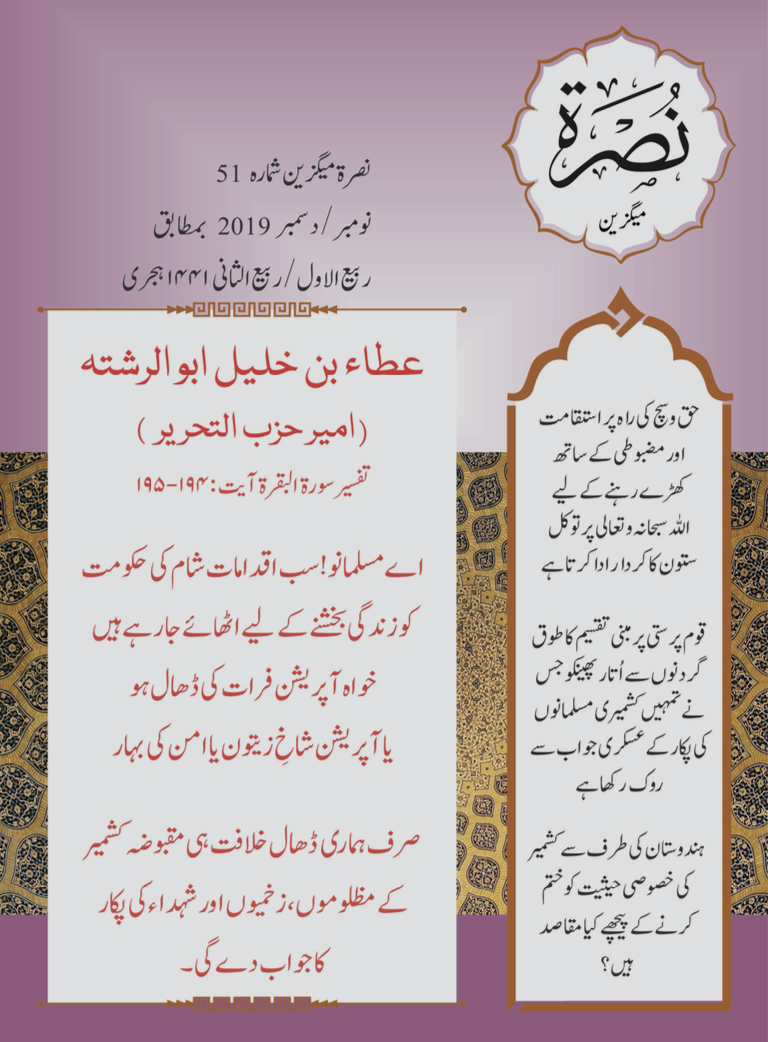 نُصْرَة
میگزین
نصرۃ میگزین شمارہ 51
نومبر / دسمبر 2019 بمطابق
ربیع الاول / ربیع الثانی ۱۴۴۱ ہجری
عطاء بن خلیل ابو الرشتہ
(امیر حزب التحریر)
تفسیر سورۃ البقرۃ آیت: ۱۹۴-۱۹۵
اے مسلمانو! سب اقدامات شام کی حکومت
کو زندگی بخشنے کے لیے اٹھائے جا رہے ہیں
خواہ آپریشن فرات کی ڈھال ہو
یا آپریشن شاخِ زیتون یا امن کی بہار
صرف ہماری ڈھال خلافت ہی مقبوضہ کشمیر
کے مظلوموں، زخمیوں اور شہداء کی پکار
کا جواب دے گی۔
حق و سچ کی راہ پر استقامت
اور مضبوطی کے ساتھ
کھڑے رہنے کے لیے
اللہ سبحانہ و تعالی پر توکل
ستون کا کردار ادا کرتا ہے
قوم پرستی پر مبنی تقسیم کا طوق
گردنوں سے اُتار پھینکو جس
نے تمہیں کشمیری مسلمانوں
کی پکار کے عسکری جواب سے
روک رکھا ہے
ہندوستان کی طرف سے کشمیر
کی خصوصی حیثیت کو ختم
کرنے کے پیچھے کیا مقاصد
ہیں؟